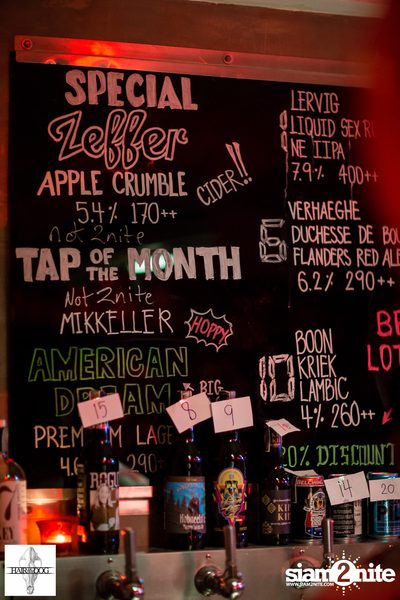 SPECIAL
Zeffer
APPLE CRUMBLE
CIDER!!
5.4% 170++
not 2nite
TAP OF THE MONTH
Not 2nite
MIKKELLER
HOPPY
AMERICAN
DREAM
BIG
4.6
290
LERVIG
LIQUID
NE IIPA
7.9% 400++
6
VERHAEGHE
DUCHESSE DE
FLANDERS RED ALE
6.2% 290++
10
BOON
KRIEK
LAMBIC
4% 260++
0% DISCOUNT
15
8
9
14
20
ROGUE
HAIR of the DOG
siam2nite
WWW.SIAM2NITE.COM